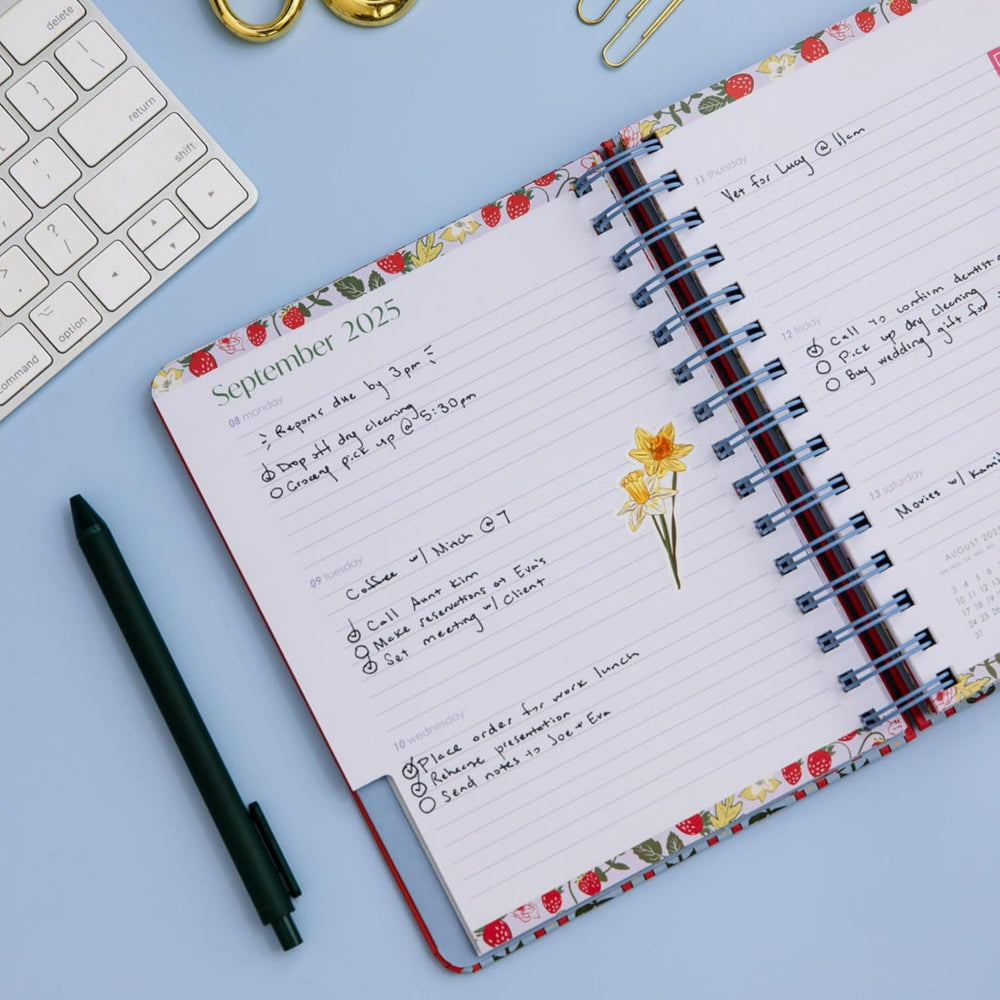 delete
return
shift
option
command
September 2025
08 monday
Reports due by 3pm
Drop off dry cleaning
Grocery pick up @ 5:30pm
09 tuesday
Coffee w/ Mitch @ 7
Call Aunt Kim
Make reservations at Eva's
Set meeting w/ Client
10 wednesday
Place order for work lunch
Rehearse presentation
Send notes to Joe + Eva
11 thursday
Vet for Lucy @ 11am
12 friday
Call to confirm dentist
Pick up dry cleaning
Buy wedding gift for
13 saturday
Movies w/ Kami
AUGUST 202
3 4 5 6
10 11 12 13
17 18 19
24 25 26
31